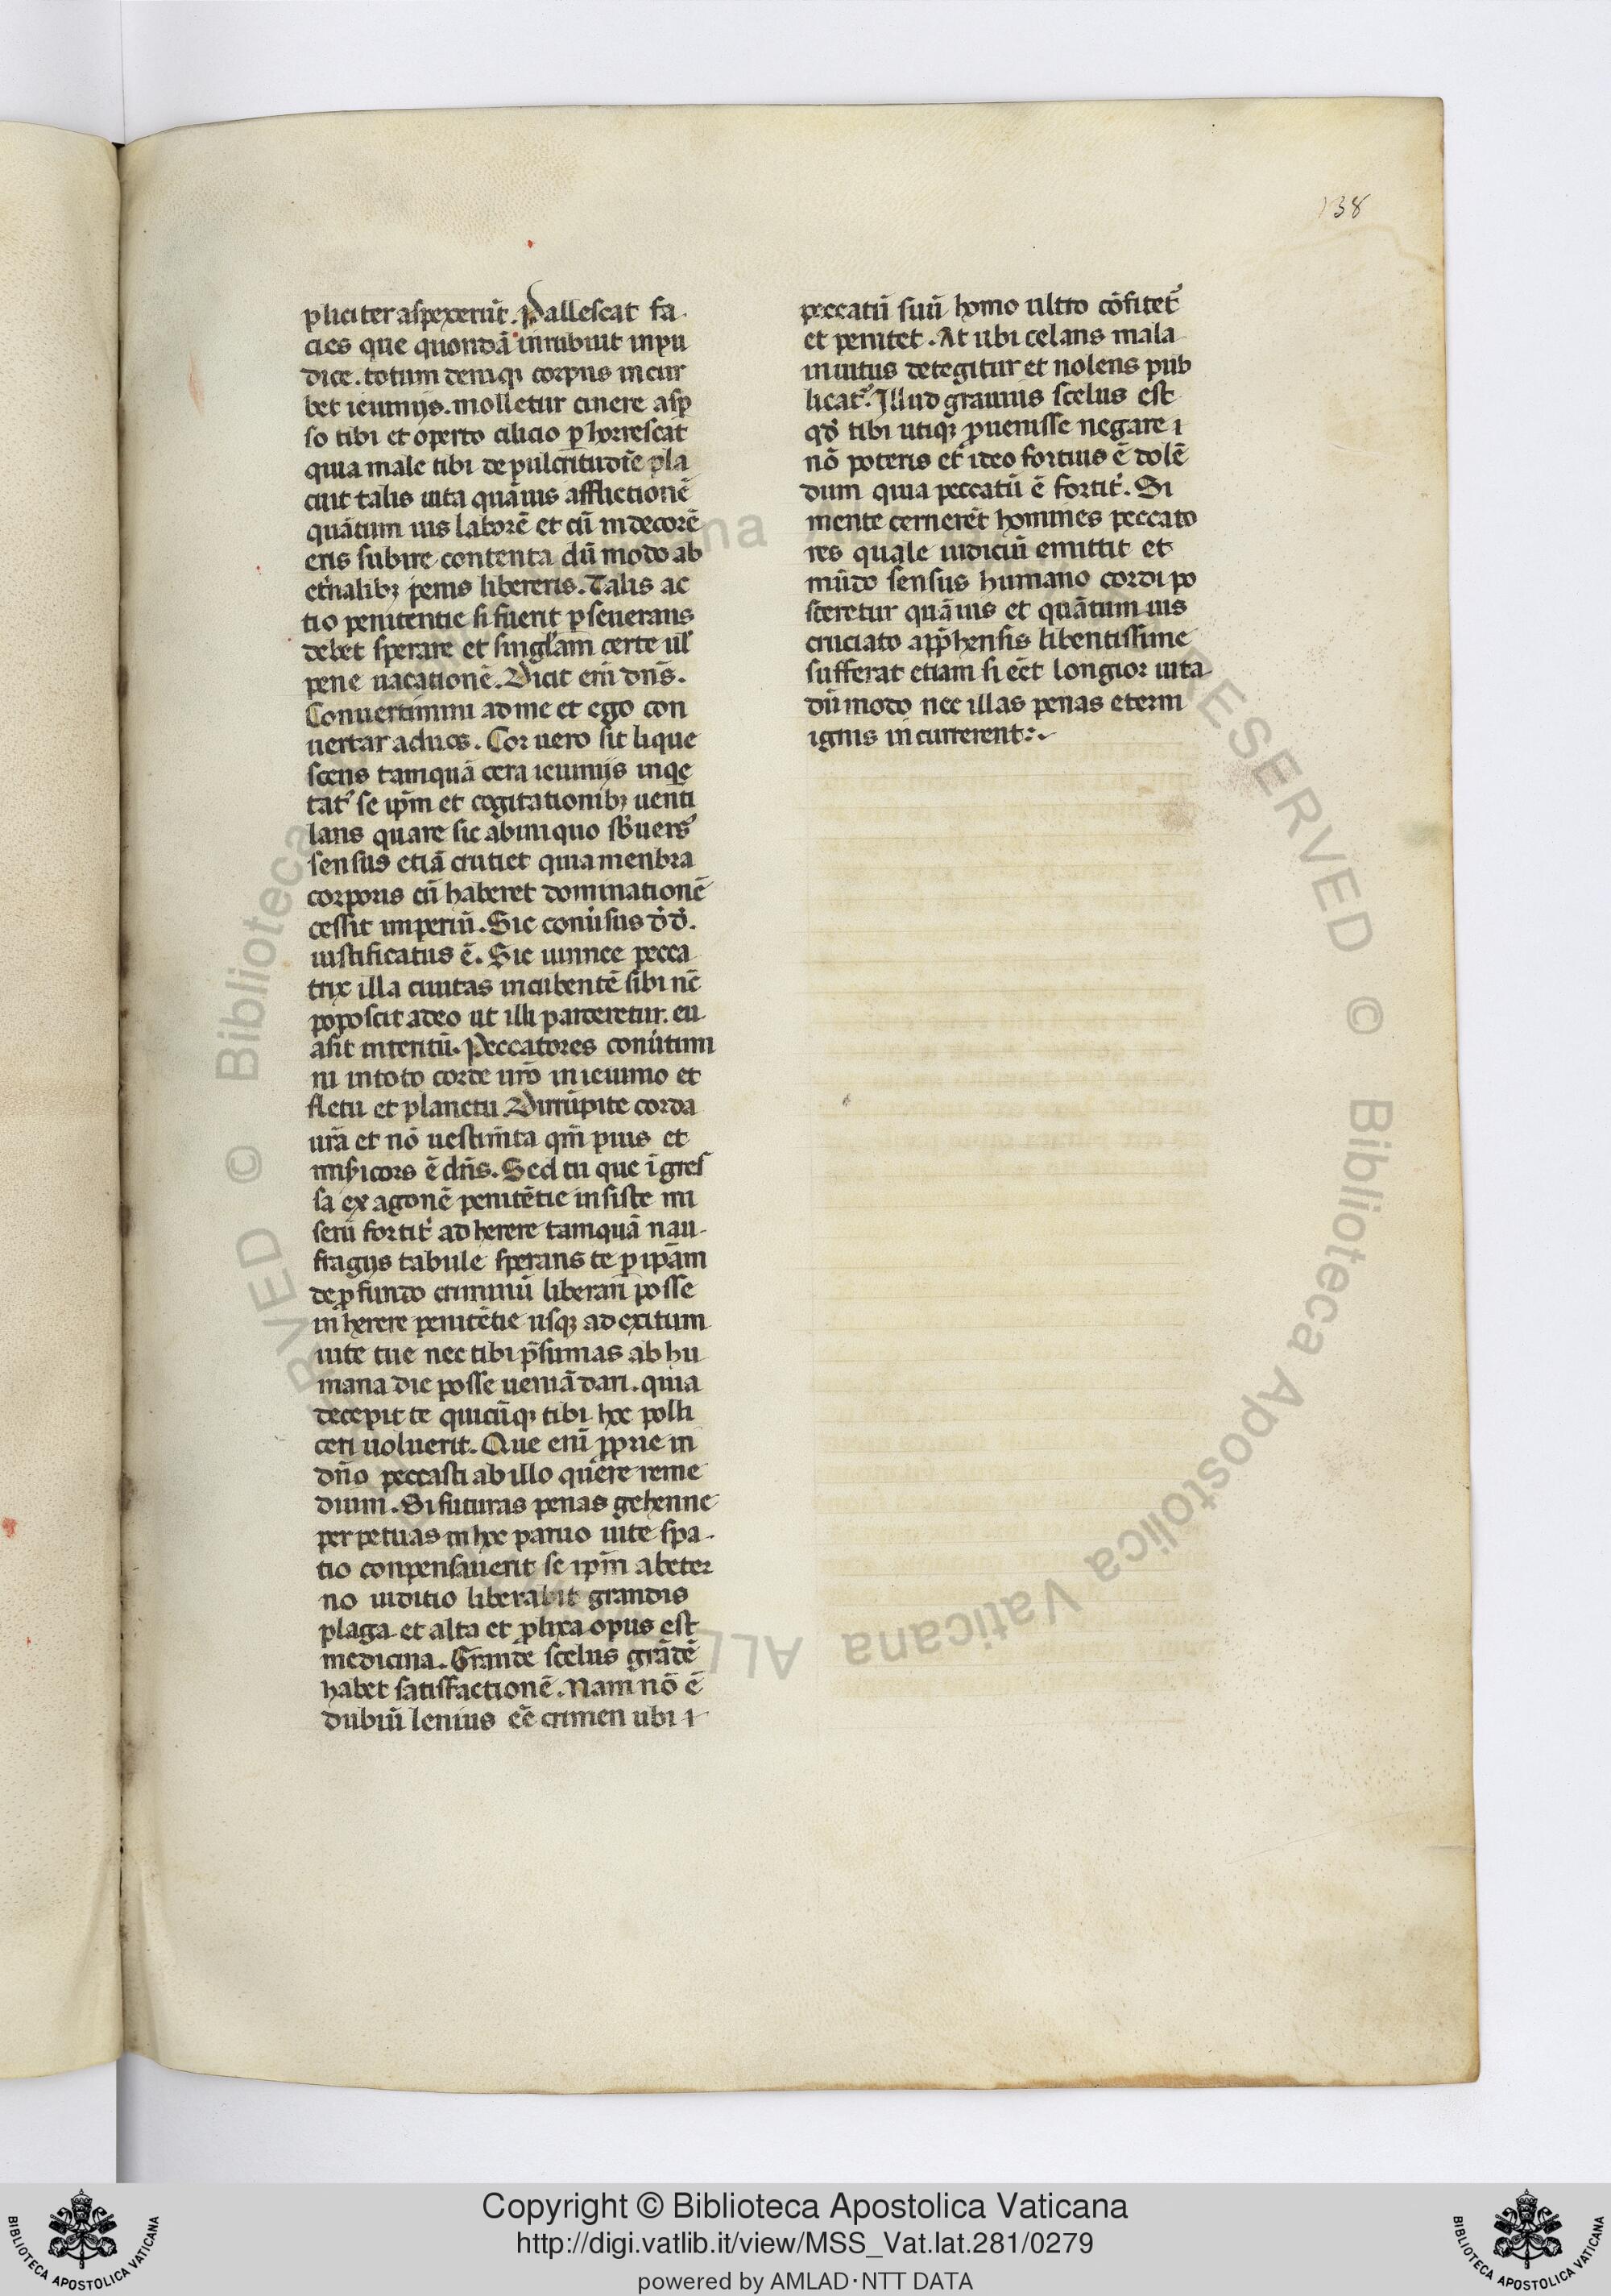 138
pliciter aspexerūt. Pallescat fa
cies que quondā inrubuit inpu
dice. totum deniqȝ corpus incur
bet ieiuniis. molletur cinere asp
so tibi et operto cilicio phorrescat
quia male tibi de pulcritudīe pla
cuit talis uita quāuis afflictionē
quātum uis laborē et cū indecorē
eris subire contenta dū modo ab
et'nalibȝ penis libereris. Talis ac
tio penitentie si fuerit pseuerans
debet sperare et singl'am certe ul'
pene uacationē. Dicit eni dn̄s.
Conuertimini ad me et ego con
uertar ad uos. Cor uero sit lique
scens tamquā cera ieiuniis inqe
tat' se ip̄m et cogitationibȝ uenti
lans quare sic ab iniquo sb'uers'
sensus etiā crutiet quia menbra
corporis cū haberet dominationē
cessit imperiū. Sic conu'sus d'd'.
iustificatus ē. Sic niniuee pecca
trix illa ciuitas incubentē sibi nc̄
poposcit adeo ut illi parceretur. eu
asit interitū. Peccatores conu'timi
ni in toto corde ur̄o in ieiunio et
fletu et planctu. Dirrūpite corda
ur̄a et nō uestim̄ta qm̄ pius et
mis'icors ē dn̄s. Sed tu que īgres
sa ex agonē penitētie insiste mi
seri fortit' adherere tamquā nau
fragiis tabule sperans te p ip̄am
de pfundo criminū liberari posse
inherere penitētie usqȝ ad exitum
uite tue nec tibi p̄sumas ab hu
mana die posse ueniā dari. quia
decepit te quicūqȝ tibi hoc polli
ceri uoluerit. Que eni pprie in
dn̄o peccasti ab illo quere reme
dium. Si futuras penas gehenne
perpetuas in hoc paruo uite spa
tio conpensauerit se ip̄m ab eter
no iuditio liberabit grandis
plaga et alta et plixa opus est
medicina. Grande scelus grādē
habet satisfactionē. Nam nō ē
dubiū lenius eē crimen ubi i
peccatū suū homo ultro cōfitet'
et penitet. At ubi celans mala
inuitus detegitur et nolens pub
licat'. Illud grauius scelus est
qd' tibi utiqȝ puenisse negare i
nō poteris et ideo fortius ē dolē
dum quia peccatū ē fortit'. Si
mente cernerēt homines peccato
res quale iudiciū emittit et
mūdo sensus humano cordi po
sceretur quāuis et quātum uis
cruciato app̄hensis libentissime
sufferat etiam si eēt longior uita
dū modo nec illas penas eterni
ignis incurrerent:.
Copyright © Biblioteca Apostolica Vaticana
http://digi.vatlib.it/view/MSS_Vat.lat.281/0279
powered by AMLAD·NTT DATA
BIBLIOTECA APOSTOLICA VATICANA
BIBLIOTECA APOSTOLICA VATICANA